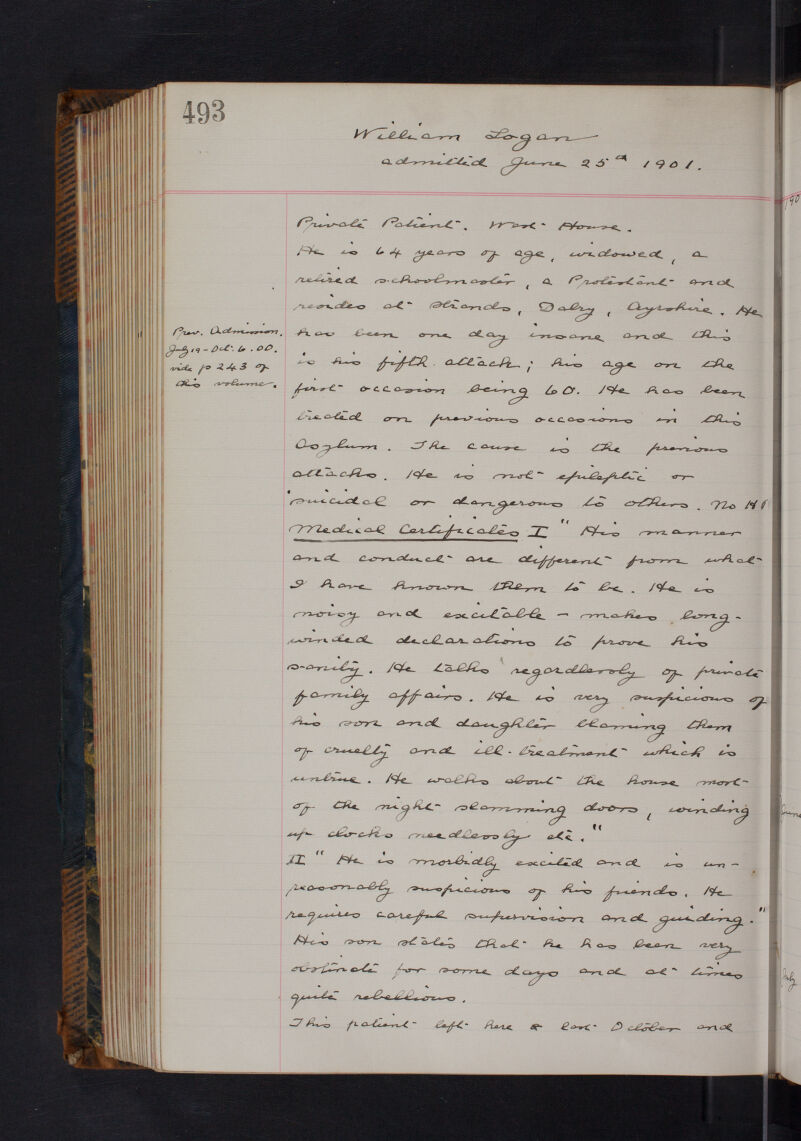 493
William Logan
admitted June 25th 1901.
Private Patient. West House.
He is 64 years of age, widowed, a
retired schoolmaster, a Protestant and
resides at Strands, Dalry, Ayrshire. He
Prev. Admission.
July 19 - Oct. 6. 00.
vide p 243 of
this volume.
has been one day insane and this
is his fifth attack; his age on the
first occasion being 60. He has been
treated on previous occasions in this
Asylum. The cause is the previous
attacks. He is not epileptic or
suicidal or dangerous to others. No H
Medical Certificates I "His manner
and conduct are different from what
I have known them to be. He is
noisy and excitable - makes long-
winded declarations to prove his
sanity. He talks regardlessly of private
family affairs. He is very suspicious of
his son and daughter blaming them
of cruelty and ill-treatment which is
untrue. He walks about the house most
of the night slamming doors, winding
up clocks needlessly etc."
II "He is morbidly excited and is un-
reasonably suspicious of his friends. He
requires careful supervision and guiding."
His son states that he has been very
obstinate for some days and at times
quite rebellious.
This patient left here last October and
190
June
July